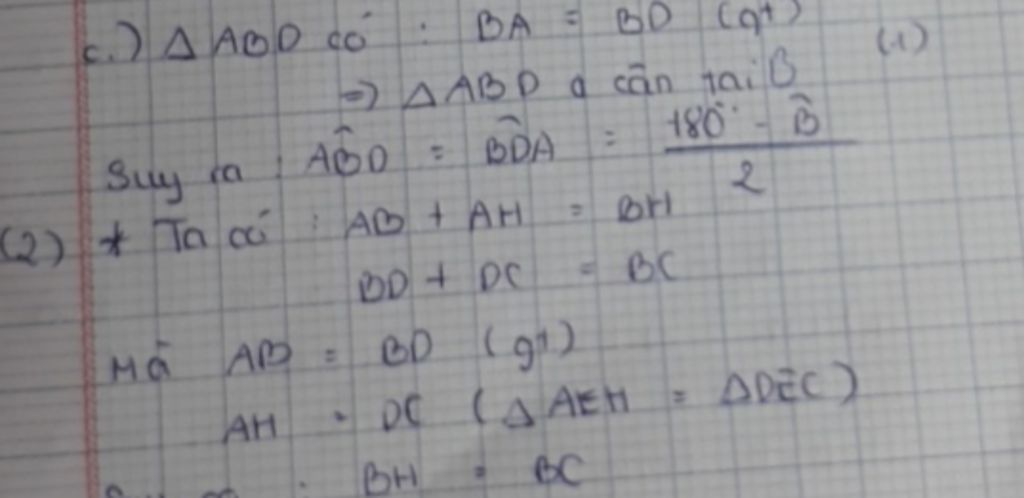 c.) Δ ABD có : BA = BD (gt)
=> Δ ABD cân tại B (1)
Suy ra : AB̂D = BD̂A = (180° - B̂) / 2
(2) * Ta có : AB + AH = BH
BD + DC = BC
Mà AB = BD (gt)
AH = DC (Δ AEH = ΔDEC)
BH = BC